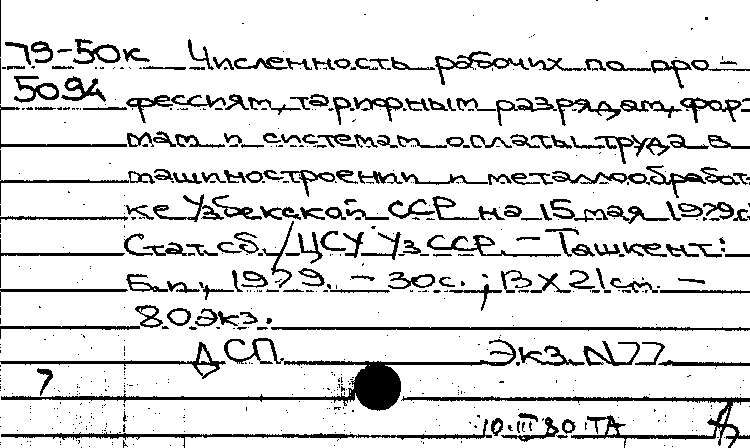 79-50к Численность рабочих по про-
5094 фессиям, тарифным разрядам, фор-
мам и системам оплаты труда в
машиностроении и металлообработ
ке Узбекской ССР на 15 мая 1979г.
Стат. сб. / ЦСУ УзССР. - Ташкент:
Б.и., 1979. - 30с.; 13 X 21см. -
80экз.
ДСП. Экз. N77.
7
10.III 80 ТА